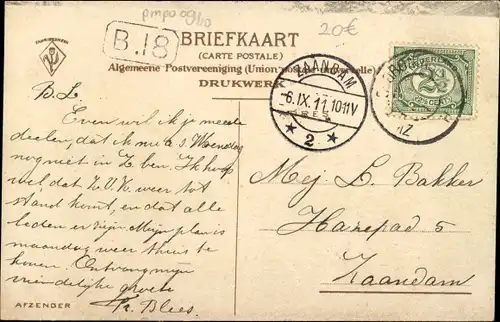 pmpo 09/10
20€
B.18
BRIEFKAART
(CARTE POSTALE)
Algemeene Postvereeniging (Union postale universelle)
DRUKWERK
ZAANDAM
6.IX.11.10-11V
2
2½
CENT
B.L.
Even wil ik je mede
deelen, dat ik nu a.s. Woensdag
nog niet in Z ben. Ik hoop
wel, dat Z.V.V. weer tot
stand komt, en dat alle
leden er zijn. Mijn plan is
maandag weer thuis te
komen. Ontvang mijn
vriendelijke groete
Tr. Blees.
Mej. L. Bakker
Hazepad 5
Zaandam
AFZENDER